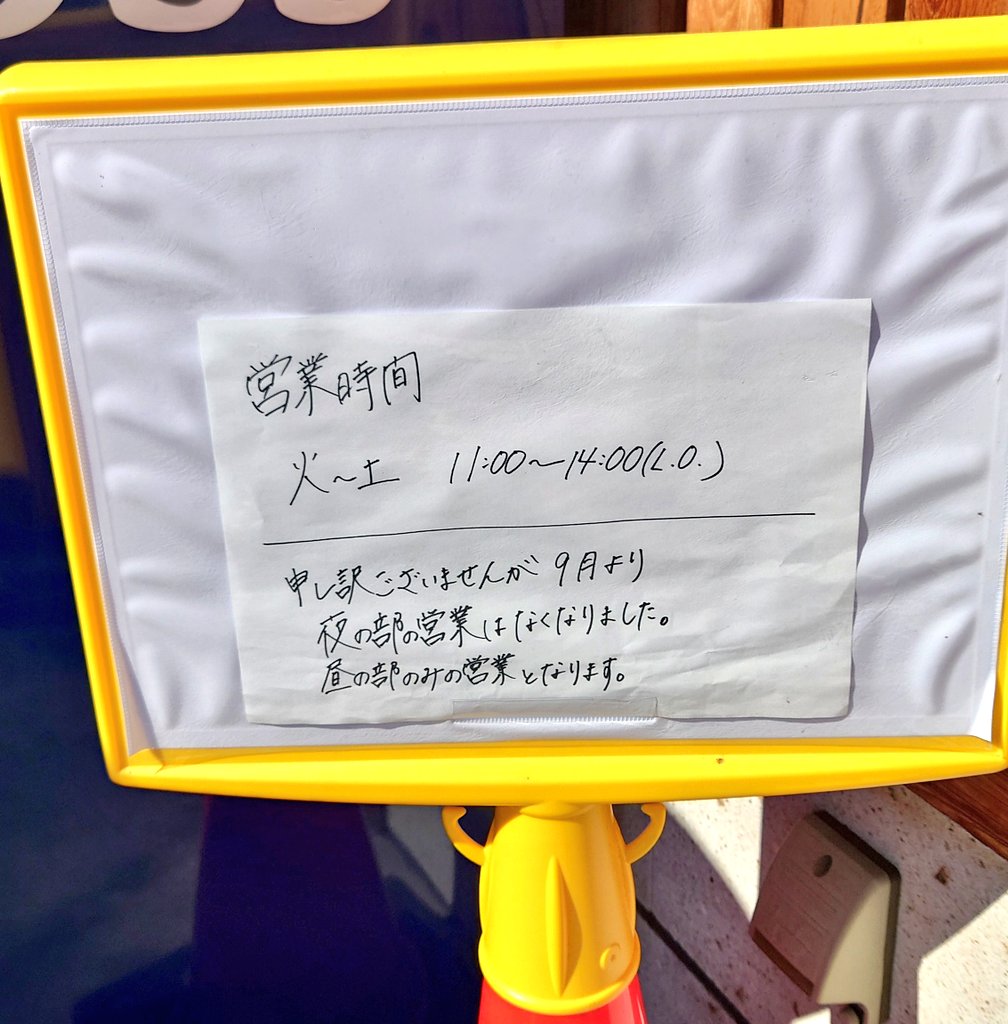 営業時間
火～土 11:00～14:00(L.O.)
申し訳ございませんが 9月より
夜の部の営業はなくなりました。
昼の部のみの営業となります。